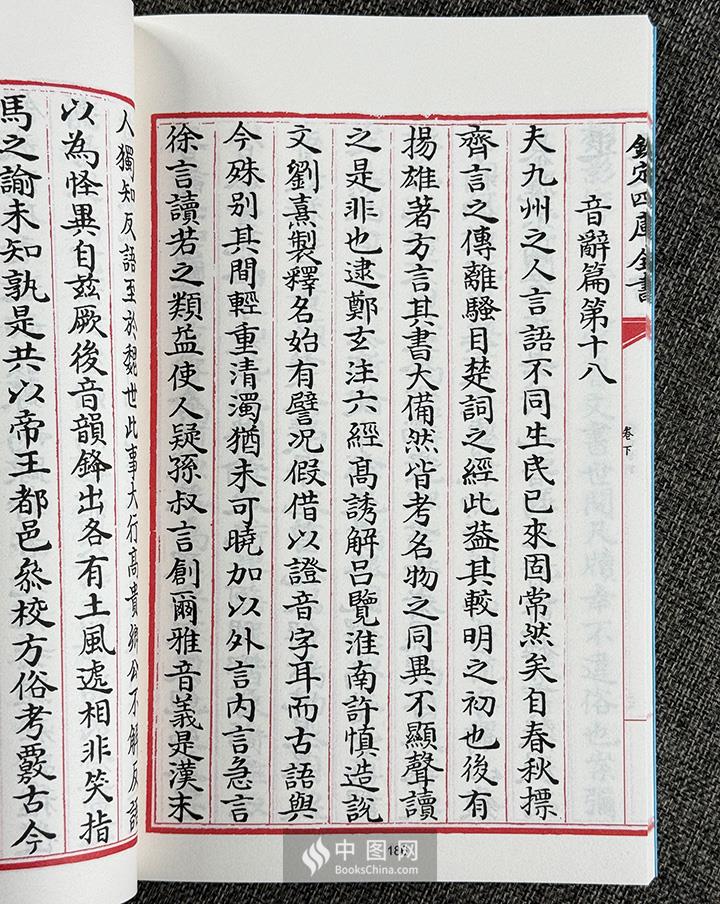 欽定四庫全書
卷下
音辭篇第十八
夫九州之人言語不同生民已來固常然矣自春秋摽
齊言之傳離騷目楚詞之經此葢其較明之初也後有
揚雄著方言其書大備然皆考名物之同異不顯聲讀
之是非也逮鄭玄注六經高誘解吕覽淮南許慎造說
文劉熹製釋名始有譬况假借以證音字耳而古語與
今殊别其間輕重清濁猶未可曉加以外言内言急言
徐言讀若之類益使人疑孫叔言創爾雅音義是漢末
人獨知反語至於魏世此事大行高貴鄉公不解反語
以為怪異自兹厥後音韻鋒出各有土風遞相非笑指
馬之諭未知孰是共以帝王都邑叅校方俗考覈古今
中图网
BooksChina.com